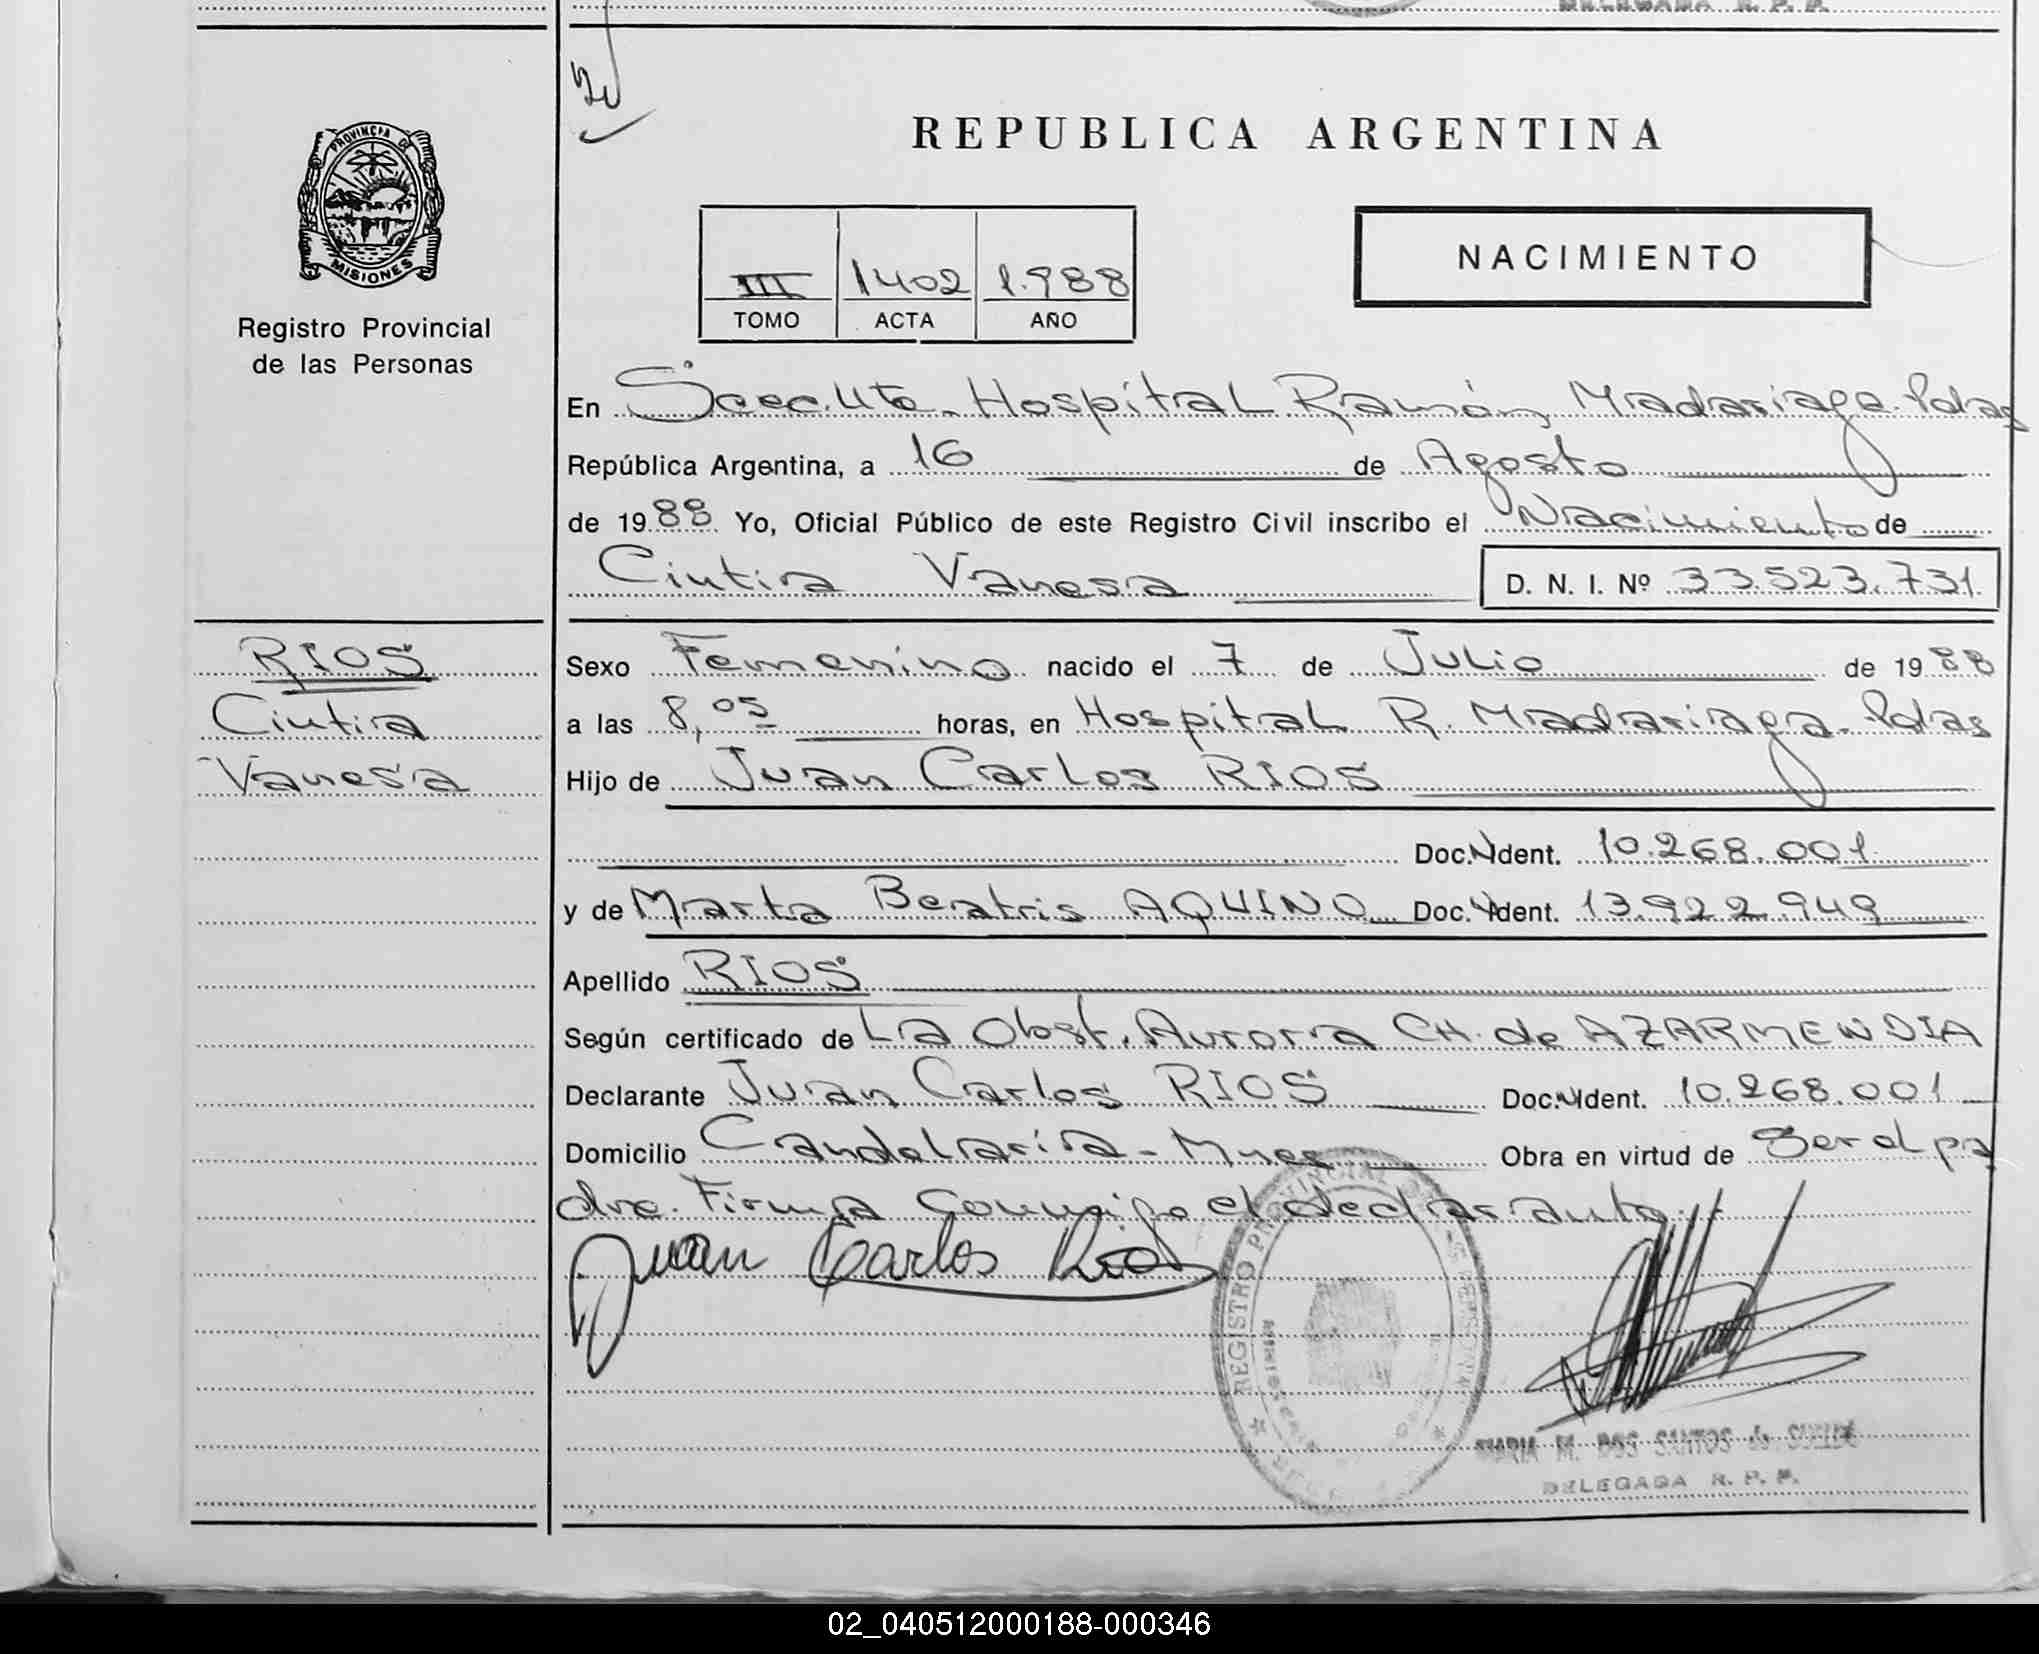 DELEGADA R. P. P.
PROVINCIA DE
MISIONES
Registro Provincial
de las Personas
REPUBLICA ARGENTINA
NACIMIENTO
III 1402 1.988
TOMO ACTA AÑO
En Secc. Hospital Ramón Madariaga Pdas
República Argentina, a 16 de Agosto
de 1988 Yo, Oficial Público de este Registro Civil inscribo el Nacimiento de
Cintia Vanesa D. N. I. Nº 33.523.731
RIOS
Cintia
Vanesa
Sexo Femenino nacido el 7 de Julio de 1988
a las 8,05 horas, en Hospital R. Madariaga - Pdas
Hijo de Juan Carlos RIOS
Doc. Ident. 10.268.001
y de Marta Beatris AQUINO Doc. Ident. 13.922.949
Apellido RIOS
Según certificado de La Obst. Aurora CH. de AZARMENDIA
Declarante Juan Carlos RIOS Doc. Ident. 10.268.001
Domicilio Candelaria - Mnes Obra en virtud de Ser el pa
dre. Firma conmigo el declarante.
Juan Carlos Rios
REGISTRO PROVINCIAL DE LAS PERSONAS
MARIA M. DOS SANTOS de
DELEGADA R. P. P.
02_040512000188-000346